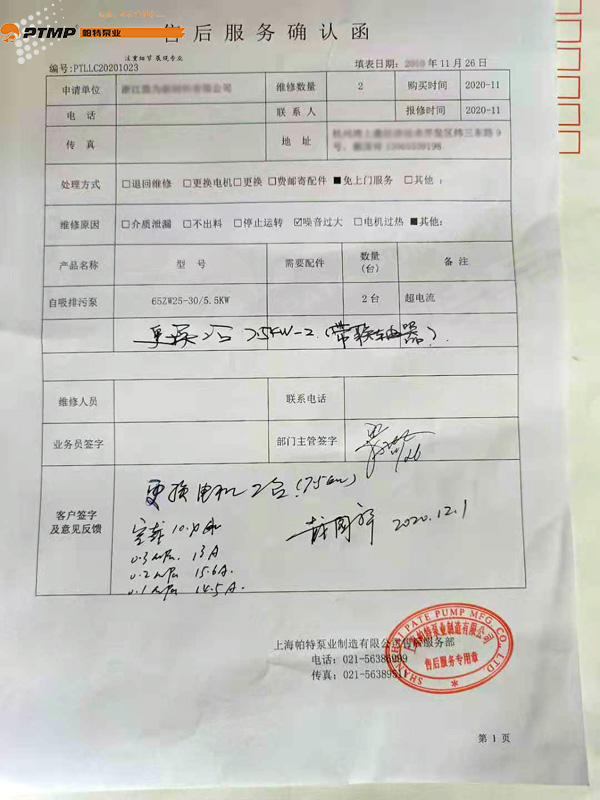 PTMP 帕特泵业
售后服务确认函
注重细节 展现专业
编号:PTLLC20201023 填表日期: 年 11 月 26 日
申请单位 维修数量 2 购买时间 2020-11
电 话 联 系 人 报修时间 2020-11
传 真 地 址
处理方式 □退回维修 □更换电机□更换 □费邮寄配件 ■免上门服务 □其他：
维修原因 □介质泄漏 □不出料 □停止运转 ☑噪音过大 □电机过热 ■其他:
产品名称 型 号 需要配件 数量(台) 备 注
自吸排污泵 65ZW25-30/5.5KW 2 台 超电流
更换2台 7.5KW-2 (带联轴器).
维修人员 联系电话
业务员签字 部门主管签字
客户签字及意见反馈 更换电机2台(7.5kw)
0.3 MPa. 13 A
0.2 MPa 15.6A.
0.1 MPa 14.5 A.
2020.12.1
上海帕特泵业制造有限公司售后服务部
电话：021-56386999
传真：021-563895
SHANGHAI PATE PUMP MFG. CO., LTD.
上海帕特泵业制造有限公司
售后服务专用章
第 1 页